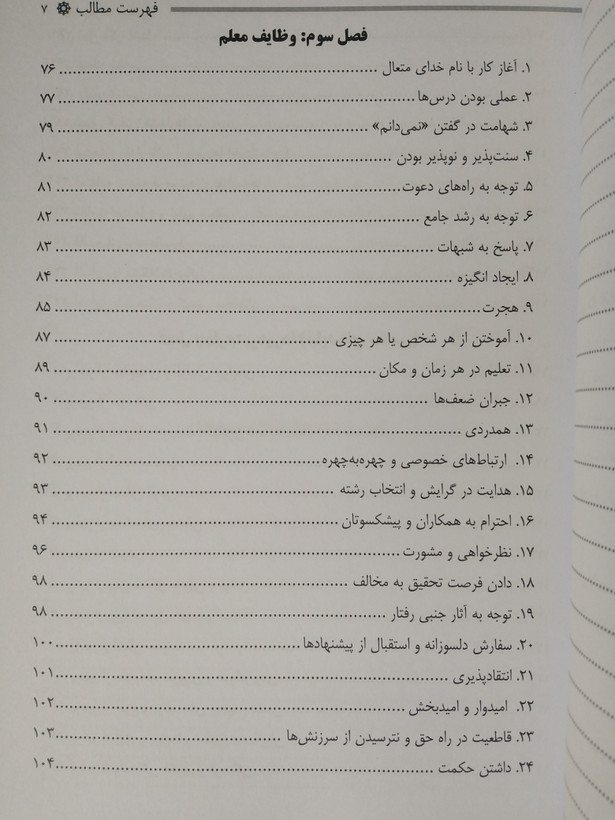 فهرست مطالب ۷
فصل سوم: وظایف معلم
۱. آغاز کار با نام خدای متعال ........ ۷۶
۲. عملی بودن درس‌ها ........ ۷۷
۳. شهامت در گفتن «نمی‌دانم» ........ ۷۹
۴. سنت‌پذیر و نوپذیر بودن ........ ۸۰
۵. توجه به راه‌های دعوت ........ ۸۱
۶. توجه به رشد جامع ........ ۸۲
۷. پاسخ به شبهات ........ ۸۳
۸. ایجاد انگیزه ........ ۸۴
۹. هجرت ........ ۸۵
۱۰. آموختن از هر شخص یا هر چیزی ........ ۸۷
۱۱. تعلیم در هر زمان و مکان ........ ۸۹
۱۲. جبران ضعف‌ها ........ ۹۰
۱۳. همدردی ........ ۹۱
۱۴. ارتباط‌های خصوصی و چهره‌به‌چهره ........ ۹۲
۱۵. هدایت در گرایش و انتخاب رشته ........ ۹۳
۱۶. احترام به همکاران و پیشکسوتان ........ ۹۴
۱۷. نظرخواهی و مشورت ........ ۹۶
۱۸. دادن فرصت تحقیق به مخالف ........ ۹۸
۱۹. توجه به آثار جنبی رفتار ........ ۹۸
۲۰. سفارش دلسوزانه و استقبال از پیشنهادها ........ ۱۰۰
۲۱. انتقادپذیری ........ ۱۰۱
۲۲. امیدوار و امیدبخش ........ ۱۰۲
۲۳. قاطعیت در راه حق و نترسیدن از سرزنش‌ها ........ ۱۰۳
۲۴. داشتن حکمت ........ ۱۰۴